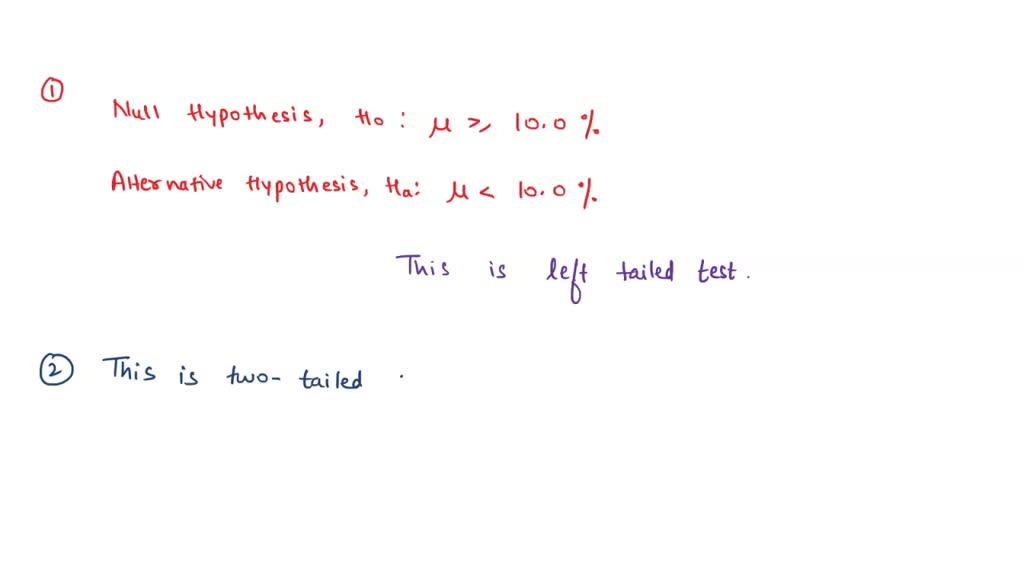 ①
Null Hypothesis, Ho : μ ≥ 10.0 %
Alternative Hypothesis, Ha: μ < 10.0 %.
This is left tailed test.
② This is two-tailed .